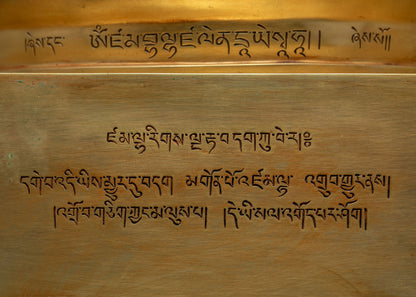 །ཞེས་དང་ ཨོཾ་ཛམབྷལྷཛལེནདྲཱཡེསྭཱཧཱ།། ཞེས་སོ།།
ཛམ་ལྷ་རིགས་ལྔ་རྟ་བདག་ཀུ་བེ་ར།༔
དགེ་བ་འདི་ཡིས་མྱུར་དུ་བདག མགོན་པོ་འཛམ་ལྷ་ འགྲུབ་གྱུར་ནས།
།འགྲོ་བ་གཅིག་ཀྱང་མ་ལུས་པ། །དེ་ཡི་ས་ལ་འགོད་པར་ཤོག།